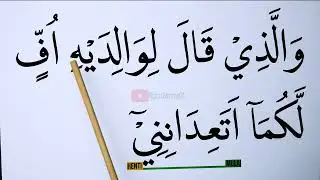 وَالَّذِيْ قَالَ لِوَالِدَيْهِ اُفٍّ
لَّكُمَآ اَتَعِدَانِنِيْٓ
HENTI